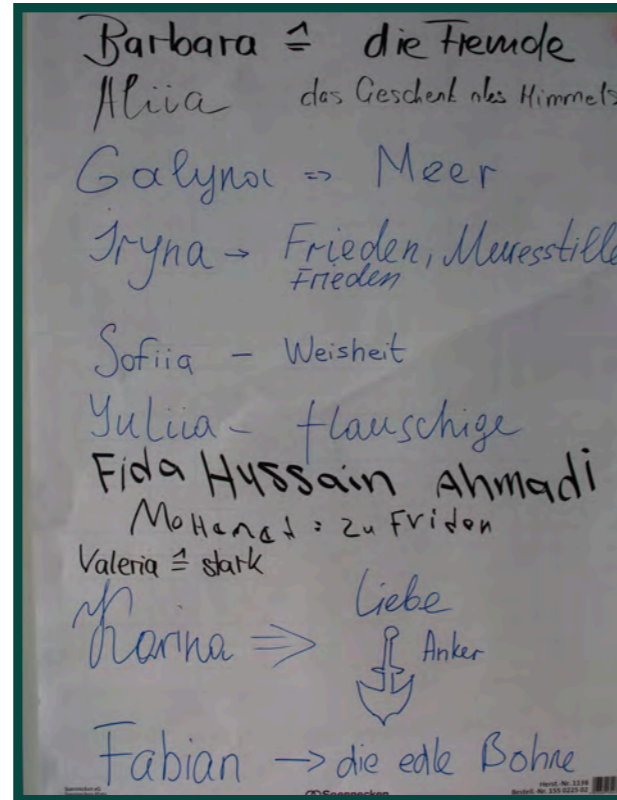 Barbara ≙ die Fremde
Aliia das Geschenk des Himmels
Galyna => Meer
Iryna → Frieden, Meeresstille
Frieden
Sofiia – Weisheit
Yuliia – flauschige
Fida Hussain Ahmadi
Mohanad : zu Friden
Valeria ≙ stark
Karina ⇒ Liebe
Anker
Fabian → die edle Bohne
Soennecken
Herst.-Nr. 1134
Bestell.-Nr. 155 0225 02